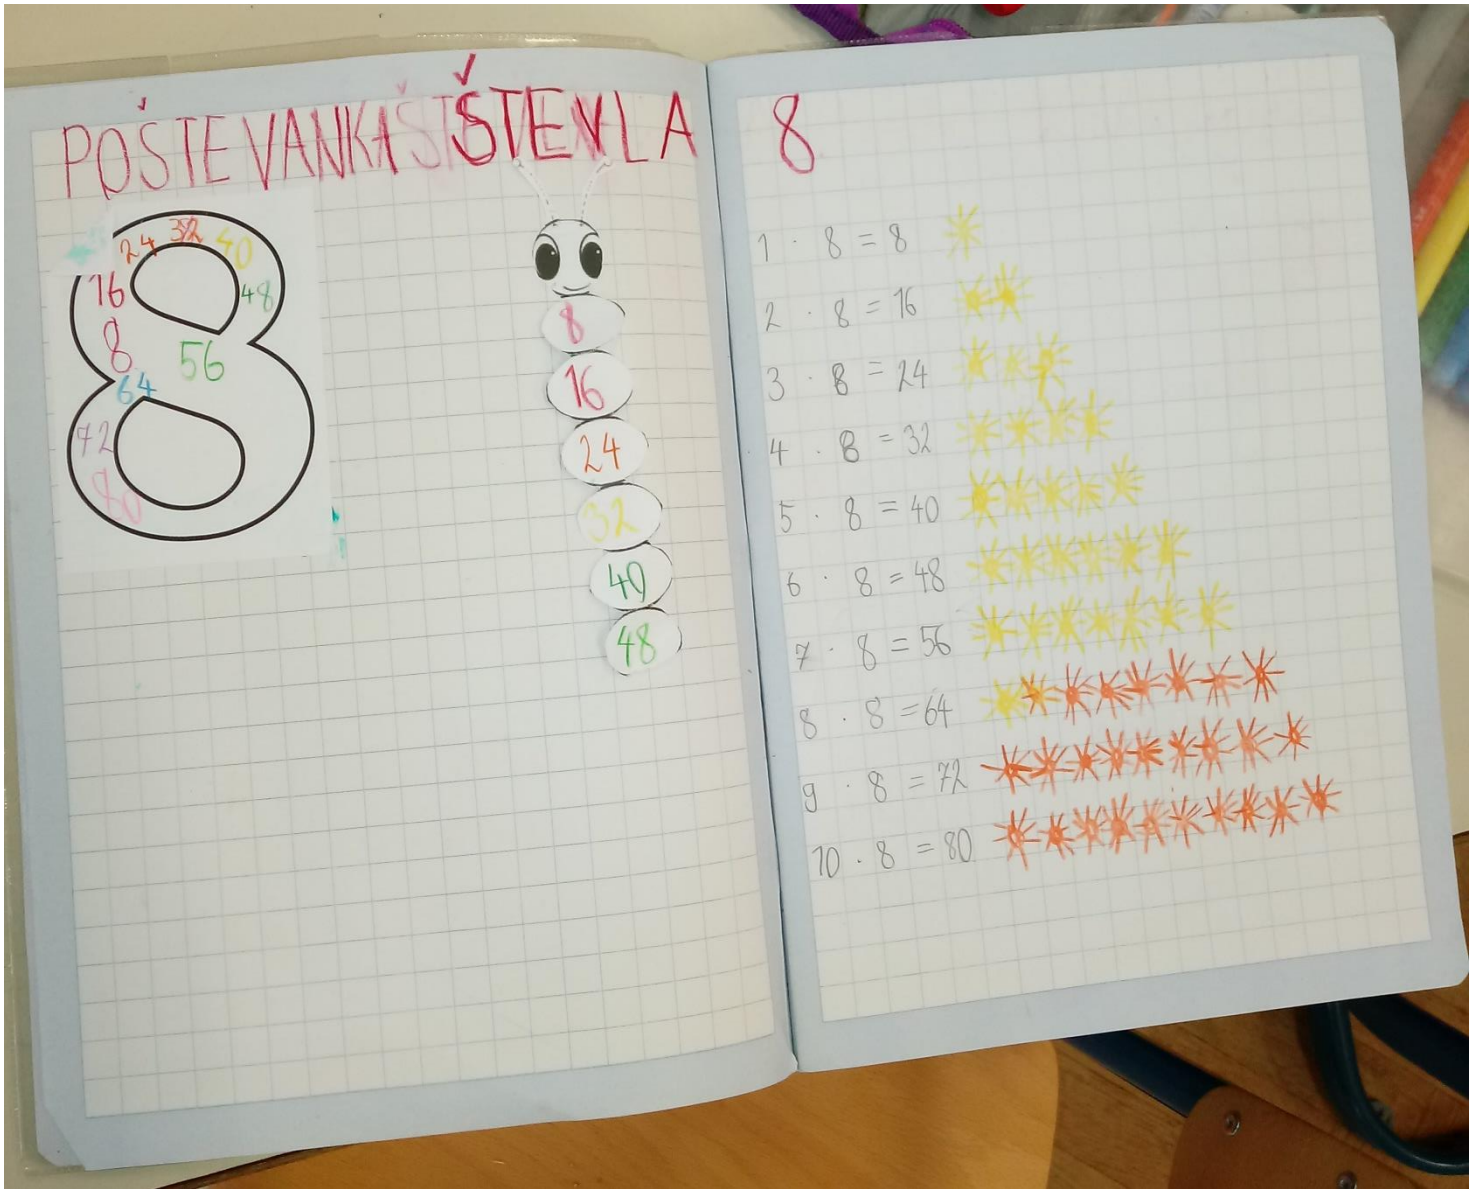 POŠTEVANKA ŠTEVILA 8
24 32 40
16 48
8 56
64
72
80
8
16
24
32
40
48
1 · 8 = 8
2 · 8 = 16
3 · 8 = 24
4 · 8 = 32
5 · 8 = 40
6 · 8 = 48
7 · 8 = 56
8 · 8 = 64
9 · 8 = 72
10 · 8 = 80